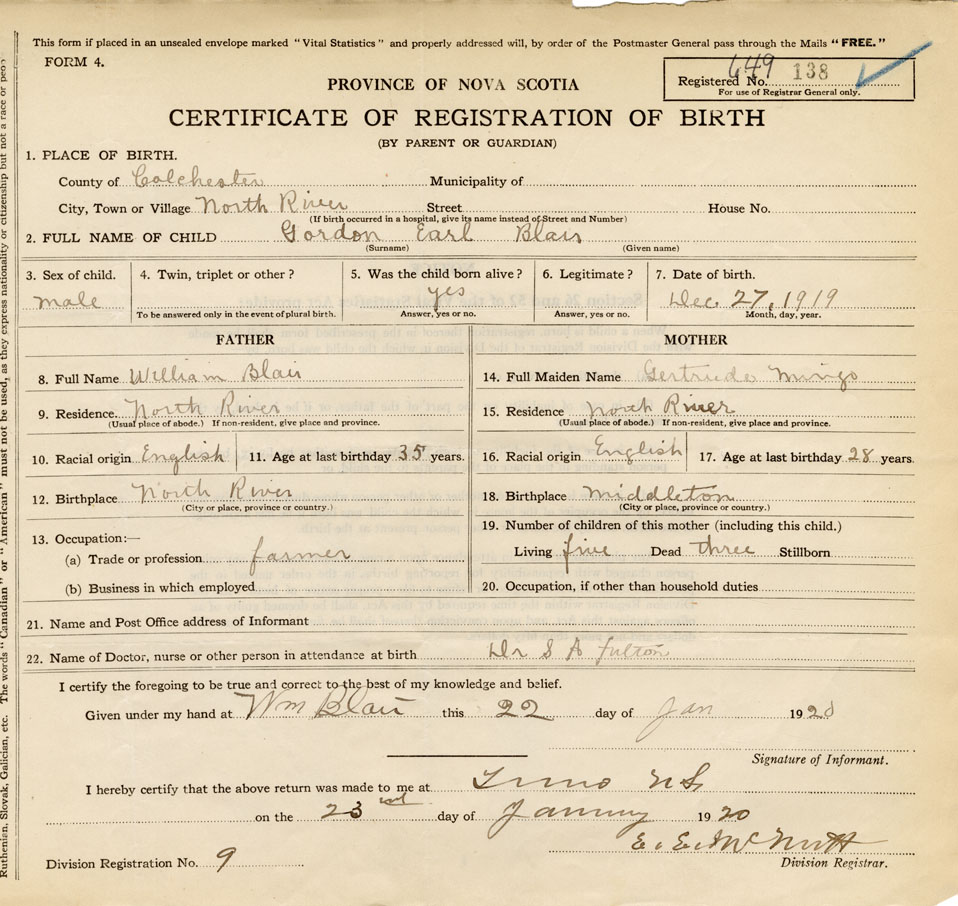 This form if placed in an unsealed envelope marked "Vital Statistics" and properly addressed will, by order of the Postmaster General pass through the Mails "FREE."
FORM 4.
Registered No. 649 138
For use of Registrar General only.
PROVINCE OF NOVA SCOTIA
CERTIFICATE OF REGISTRATION OF BIRTH
(BY PARENT OR GUARDIAN)
1. PLACE OF BIRTH.
County of Colchester Municipality of
City, Town or Village North River Street House No.
(If birth occurred in a hospital, give its name instead of Street and Number)
2. FULL NAME OF CHILD Gordon Earl Blair
(Surname) (Given name)
3. Sex of child. 4. Twin, triplet or other? 5. Was the child born alive? 6. Legitimate? 7. Date of birth.
male yes Dec. 27, 1919
To be answered only in the event of plural birth. Answer, yes or no. Answer, yes or no. Month, day, year.
FATHER
8. Full Name William Blair
9. Residence. North River
(Usual place of abode.) If non-resident, give place and province.
10. Racial origin English 11. Age at last birthday 35 years.
12. Birthplace North River
(City or place, province or country.)
13. Occupation:—
(a) Trade or profession farmer
(b) Business in which employed
MOTHER
14. Full Maiden Name Gertrude Mingo
15. Residence North River
(Usual place of abode.) If non-resident, give place and province.
16. Racial origin English 17. Age at last birthday 28 years.
18. Birthplace Middleton
(City or place, province or country.)
19. Number of children of this mother (including this child.)
Living five Dead three Stillborn
20. Occupation, if other than household duties
21. Name and Post Office address of Informant
22. Name of Doctor, nurse or other person in attendance at birth Dr S A Fulton
I certify the foregoing to be true and correct to the best of my knowledge and belief.
Given under my hand at Wm Blair this 22 day of Jan 1920
Signature of Informant.
I hereby certify that the above return was made to me at Truro N S
on the 23 day of January 1920
E. E. McNutt
Division Registration No. 9 Division Registrar.
Ruthenian, Slovak, Galician, etc. The words "Canadian" or "American" must not be used, as they express nationality or citizenship but not a race or